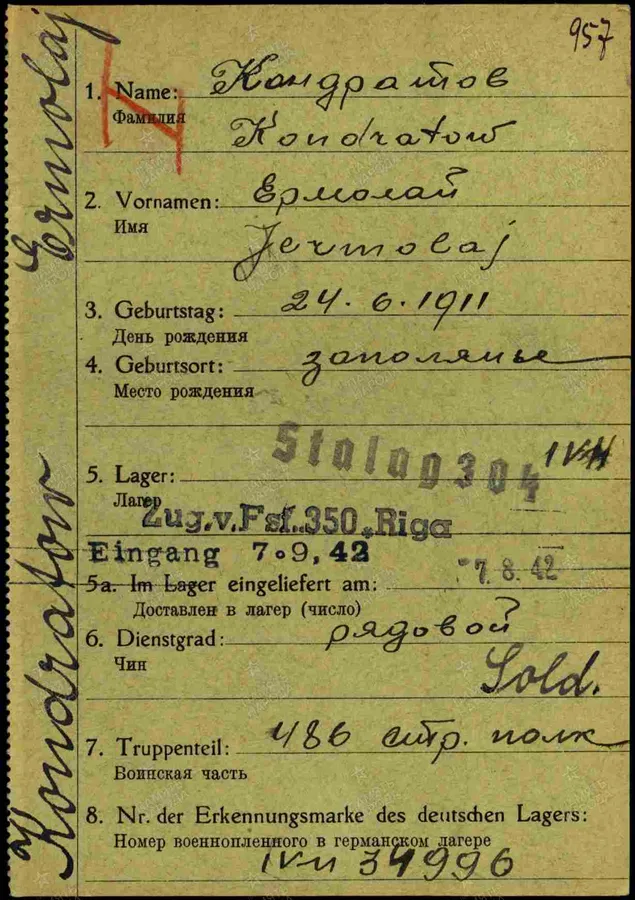 957
1. Name: Кондратов
Фамилия
Kondratow
2. Vornamen: Ермолай
Имя
Jermolaj
3. Geburtstag: 24.6.1911
День рождения
4. Geburtsort: заполянье
Место рождения
Stalag 304 IVH
5. Lager:
Лагер
Zug.v.Fsf.350.Riga
Eingang 7.9,42
7.8.42
5a. Im Lager eingeliefert am:
Доставлен в лагер (число)
6. Dienstgrad: рядовой
Чин
Sold.
7. Truppenteil: 486 стр. полк
Воинская часть
8. Nr. der Erkennungsmarke des deutschen Lagers:
Номер военнопленного в германском лагере
34996
Kondratow Ermolaj